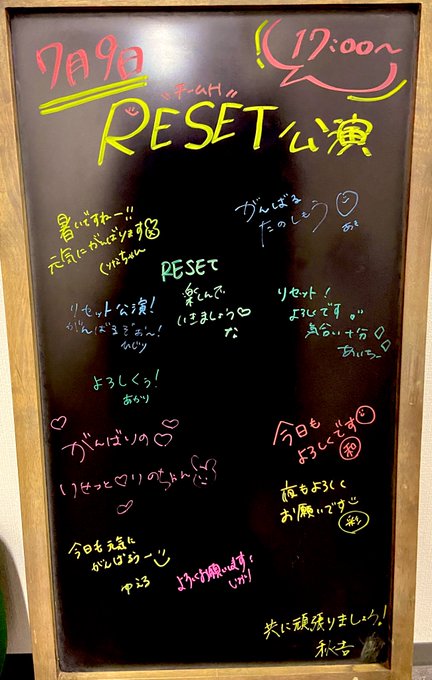 7月9日
17:00〜
チームH
RESET公演
暑いですねー!!
元気にがんばります
がんばる
たのしもう
RESET
楽しんで
いきましょう♡
な
リセット公演!
がんばるぞぉー!
ひじり
リセット!
よろしくです。
気合い十分
あいちー
よろしくぅ!
あかり
がんばりの♡
りせっと♡りのちゃん
今日も
よろしくです
和
夜もよろしく
お願いです
彩
今日も元気に
がんばろうー
ゆえる
よろしくお願いします
しおり
共に頑張りましょう!
秋吉